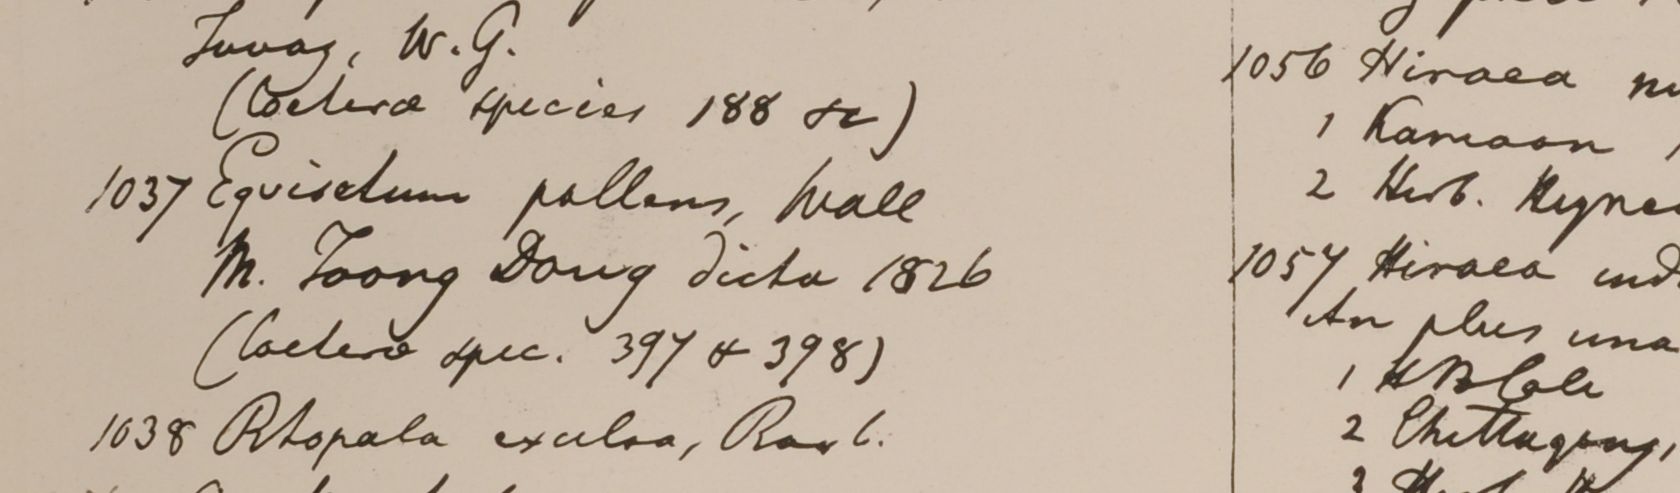 Tavoy, W.G.
(Coeterae species 188 &c)
1037 Equisetum pallens, Wall
M. Toong Dong dicta 1826
(Coeterae spec. 397 & 398)
1038 Rhopala excelsa, Roxb.
1056 Hiraea
1 Kamaon
2 Herb. Heyne
1057 Hiraea ind
An plus una
1 HBCale
2 Chittagong,
3 Herb.